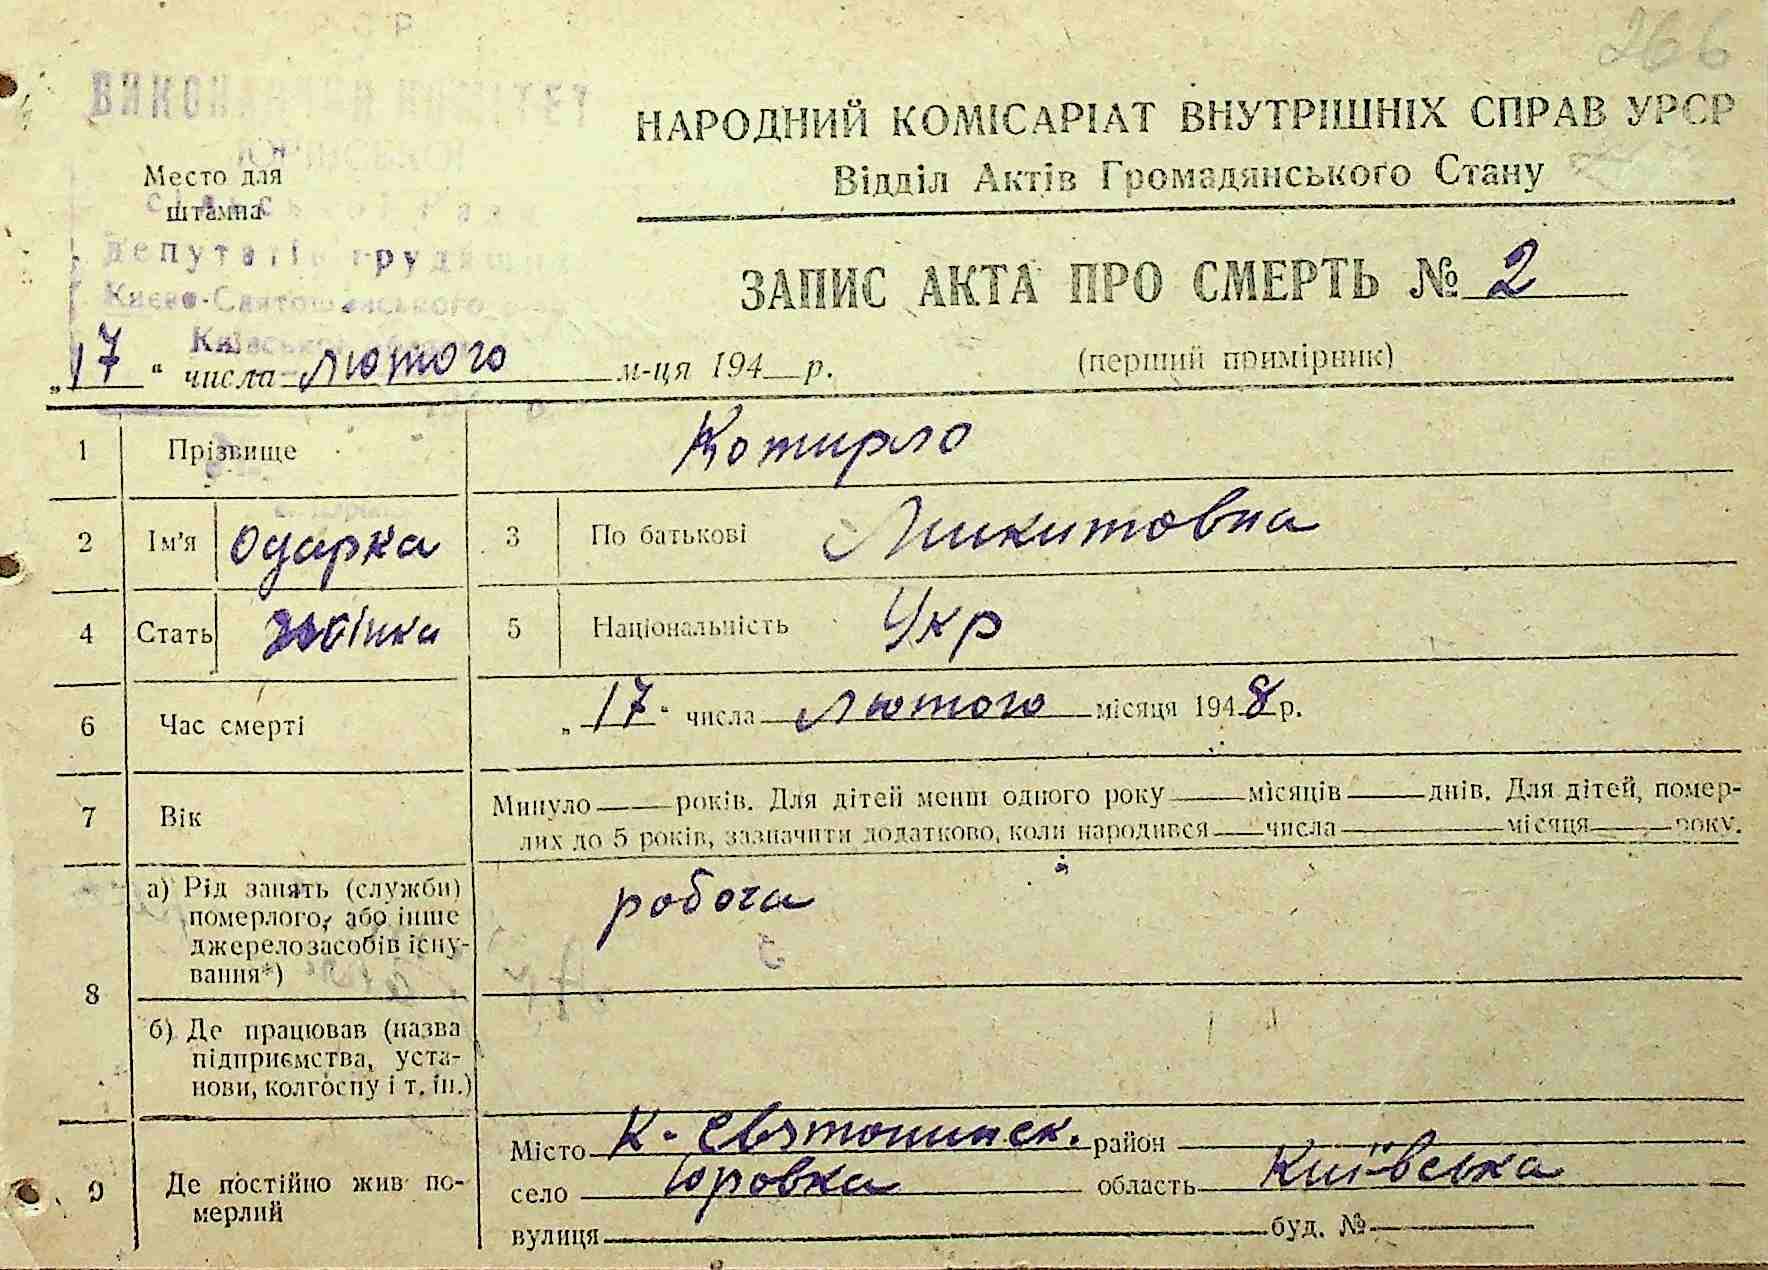 266
ВИКОНАВЧИЙ КОМІТЕТ
НАРОДНИЙ КОМІСАРІАТ ВНУТРІШНІХ СПРАВ УРСР
Відділ Актів Громадянського Стану
Место для
штампа
депутатів трудящих
Києво-Святошинського
Київської
ЗАПИС АКТА ПРО СМЕРТЬ № 2
„17“ числа лютого м-ця 194 р.
(перший примірник)
1 Прізвище Котирло
2 Ім'я Одарка 3 По батькові Микитовна
4 Стать жінка 5 Національність Укр
6 Час смерті „17“ числа лютого місяця 1948 р.
7 Вік Минуло років. Для дітей менш одного року місяців днів. Для дітей, помер-
лих до 5 років, зазначити додатково, коли народився числа місяця року.
8 а) Рід занять (служби)
померлого, або інше
джерело засобів існу-
вання*)
робоча
б) Де працював (назва
підприємства, уста-
нови, колгоспу і т. ін.)
9 Де постійно жив по-
мерлий
Місто К-Святошинск. район
село Юровка область Київська
вулиця буд. №